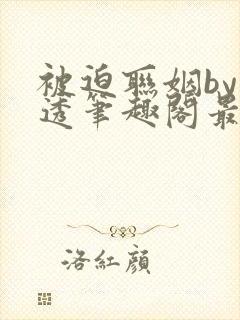 被迫聯姻by
透筆趣閣最
洛紅顔